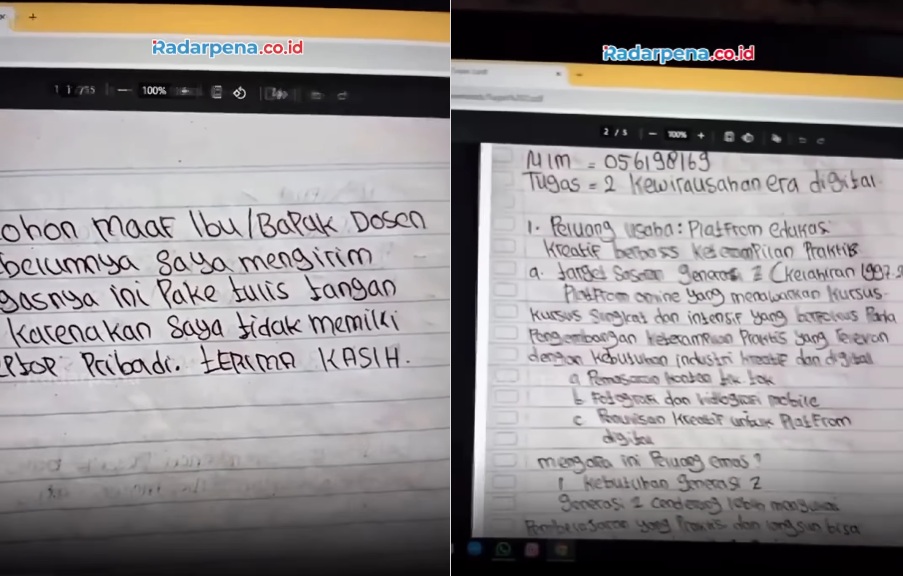 Radarpena.co.id
100%
ohon maaf Ibu/Bapak Dosen
belumnya saya mengirim
gasnya ini Pake tulis tangan
Karenakan saya tidak memilki
Ptop Pribadi. TERIMA KASIH.
Radarpena.co.id
2 / 5 100%
NIM = 056198169
Tugas = 2 Kewirausahan era digital
1. Peluang usaha: Platfrom edukasi
Kreatif berbasis Keterampilan Praktis
a. target Sasaran generasi Z (Kelahiran 1997
Platfrom online yang menawarkan Kursus-
Kursus Singkat dan intensif yang berfokus Pada
Pengembangan Keterampilan Praktis yang relevan
dengan kebutuhan industri kreatif dan digital
a Pemasaran konten tik tok
b Fotografi dan vidiografi mobile
c Penulisan Kreatif untuk Platfrom
digital
mengapa ini Peluang emas?
1 Kebutuhan generasi Z
generasi Z cenderung lebih menyukai
Pembelajaran yang Praktis dan langsun bisa